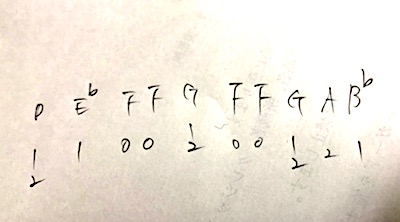 D E♭ F F G F F G A B♭
1/2 1 0 0 1/2 0 0 1/2 2 1